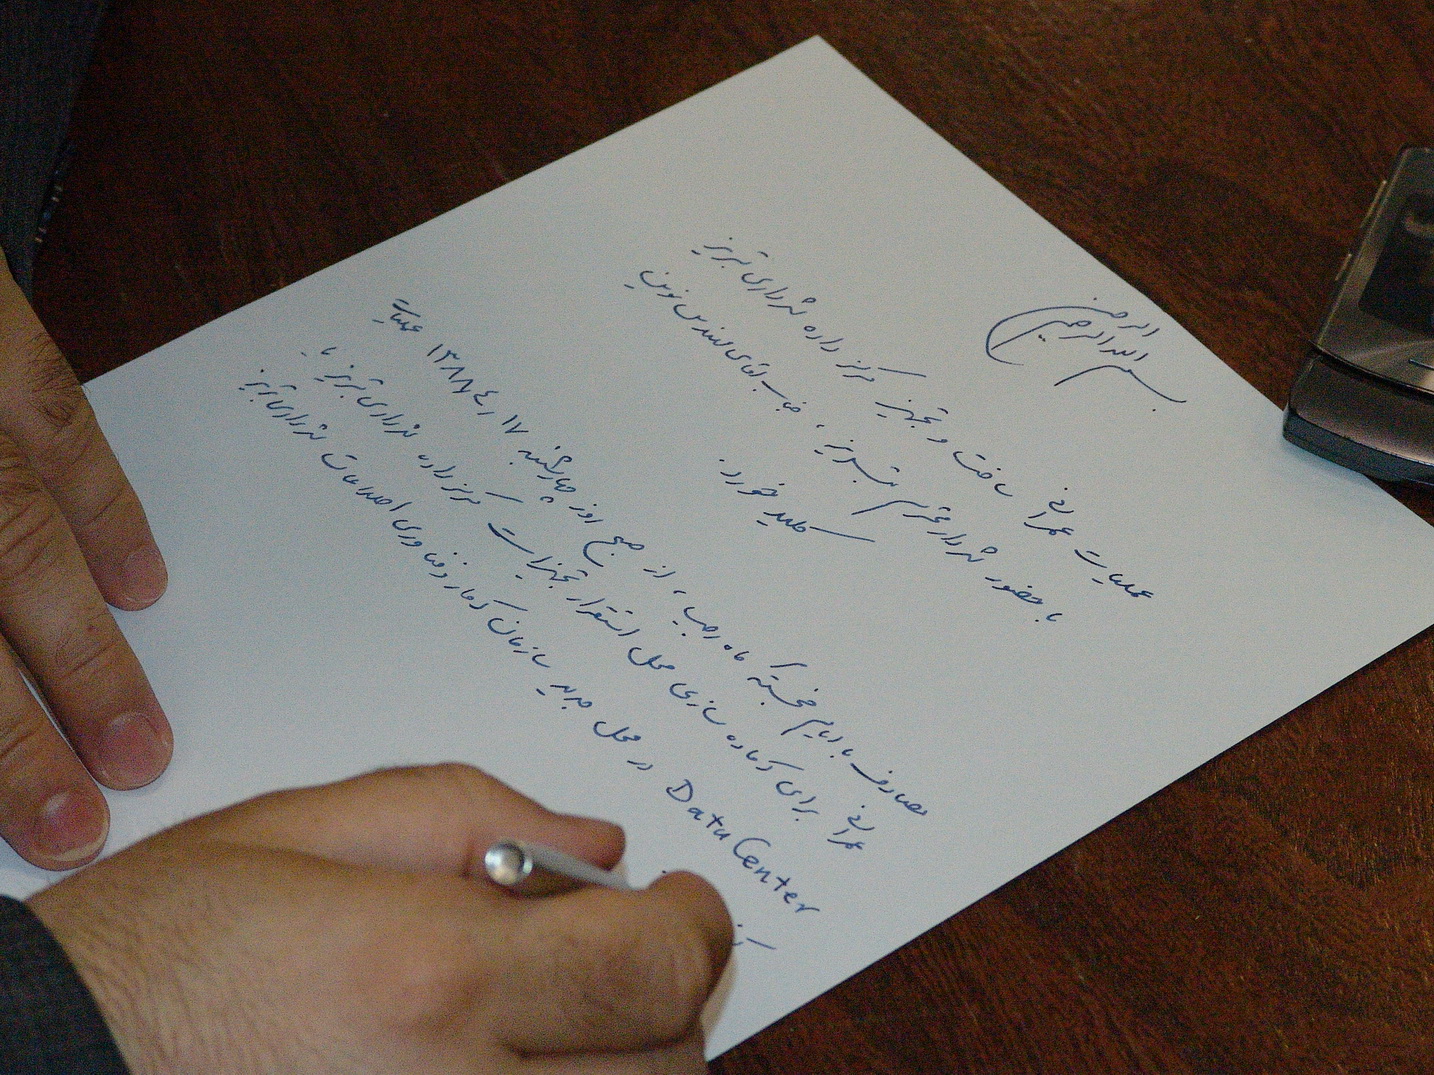 بسم الله الرحمن الرحیم
عملیات عمرانی ساخت و تجهیز مرکز داده شهرداری تبریز
با حضور شهردار محترم تبریز، جناب آقای مهندس نوین
کلید خورد.
مصادف با ایام خجسته ماه رجب، از صبح روز چهارشنبه ۱۷ ر ٤ ر ۱۳۸۸ عملیات
عمرانی برای آماده سازی محل استقرار تجهیزات مرکز داده شهرداری تبریز یا
Data Center در محل جدید سازمان آمار و فناوری اطلاعات شهرداری تبریز